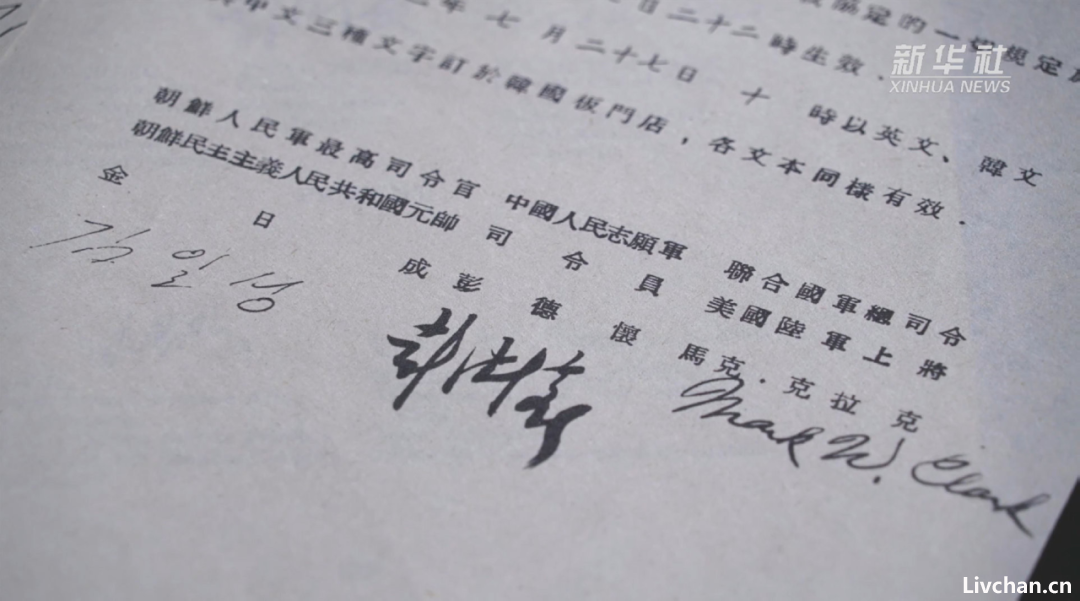 新华社
XINHUA NEWS
定的一切規定
日二十二時生效．
年七月二十七日 十 時以英文、韓文
中文三種文字訂於韓國板門店，各文本同樣有效．
朝鮮人民軍最高司令官
朝鮮民主主義人民共和國元帥
金日成
김일성
中國人民志願軍
司令員
彭德懷
彭德懷
聯合國軍總司令
美國陸軍上將
馬克·克拉克
Mark W. Clark
Livchan.cn